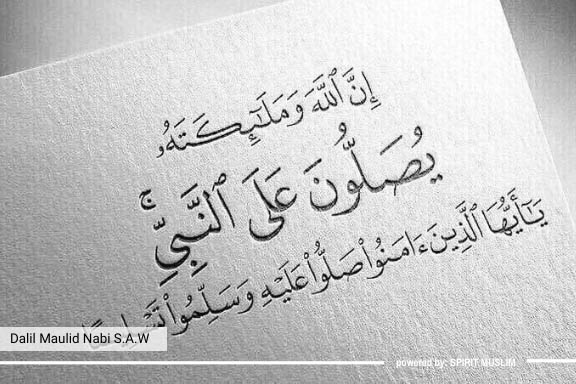 إِنَّ ٱللَّهَ وَمَلَـٰٓئِكَتَهُۥ
يُصَلُّونَ عَلَى ٱلنَّبِيِّ ۚ
يَـٰٓأَيُّهَا ٱلَّذِينَ ءَامَنُوا۟ صَلُّوا۟ عَلَيْهِ وَسَلِّمُوا۟
Dalil Maulid Nabi S.A.W
powered by: SPIRIT MUSLIM